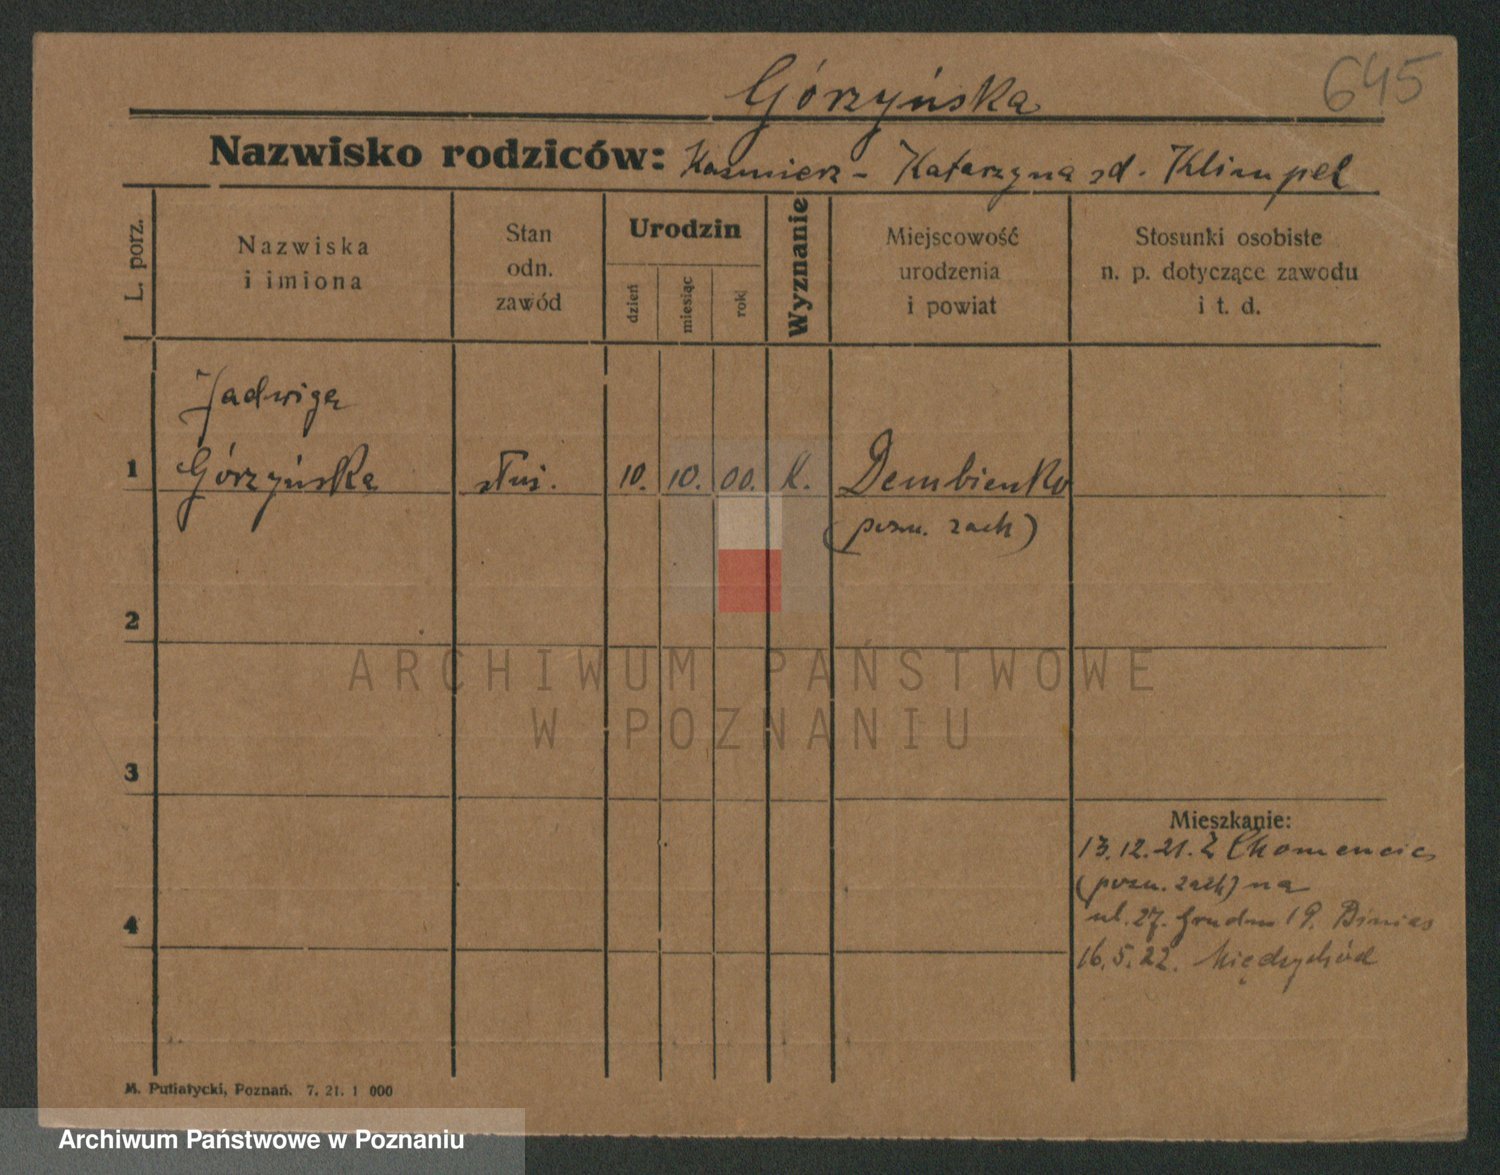 645
Górzyńska
Nazwisko rodziców: Kazmierz - Katarzyna zd. Klimpel
L. porz.
Nazwiska
i imiona
Stan
odn.
zawód
Urodzin
dzień
miesiąc
rok
Wyznanie
Miejscowość
urodzenia
i powiat
Stosunki osobiste
n. p. dotyczące zawodu
i t. d.
Jadwiga
1 Górzyńska służ. 10. 10. 00. K. Dembienko
(pozn. zach)
2
ARCHIWUM PAŃSTWOWE
W POZNANIU
3
Mieszkanie:
13.12.21. Z Chomencic
(pozn. zach) na
4
ul. 27. Grudn 19.
16.5.22. Międzychód
M. Putiatycki, Poznań. 7. 21. 1 000
Archiwum Państwowe w Poznaniu